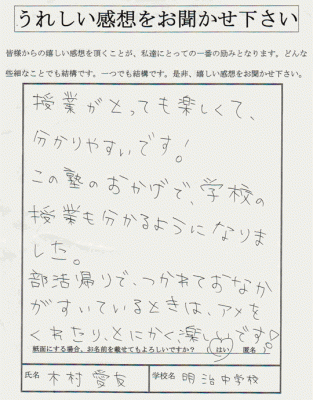 うれしい感想をお聞かせ下さい
皆様からの嬉しい感想を頂くことが、私達にとっての一番の励みとなります。どんな
些細なことでも結構です。一つでも結構です。是非、嬉しい感想をお聞かせ下さい。
授業がとっても楽しくて、
分かりやすいです!
この塾のおかげで、学校の
授業も分かるようになりま
した。
部活帰りで、つかれておなか
がすいているときは、アメを
くれたり、とにかく、楽しいです♡
紙面にする場合、お名前を載せてもよろしいですか? (はい 匿名 )
氏名 木村愛友 学校名 明治中学校